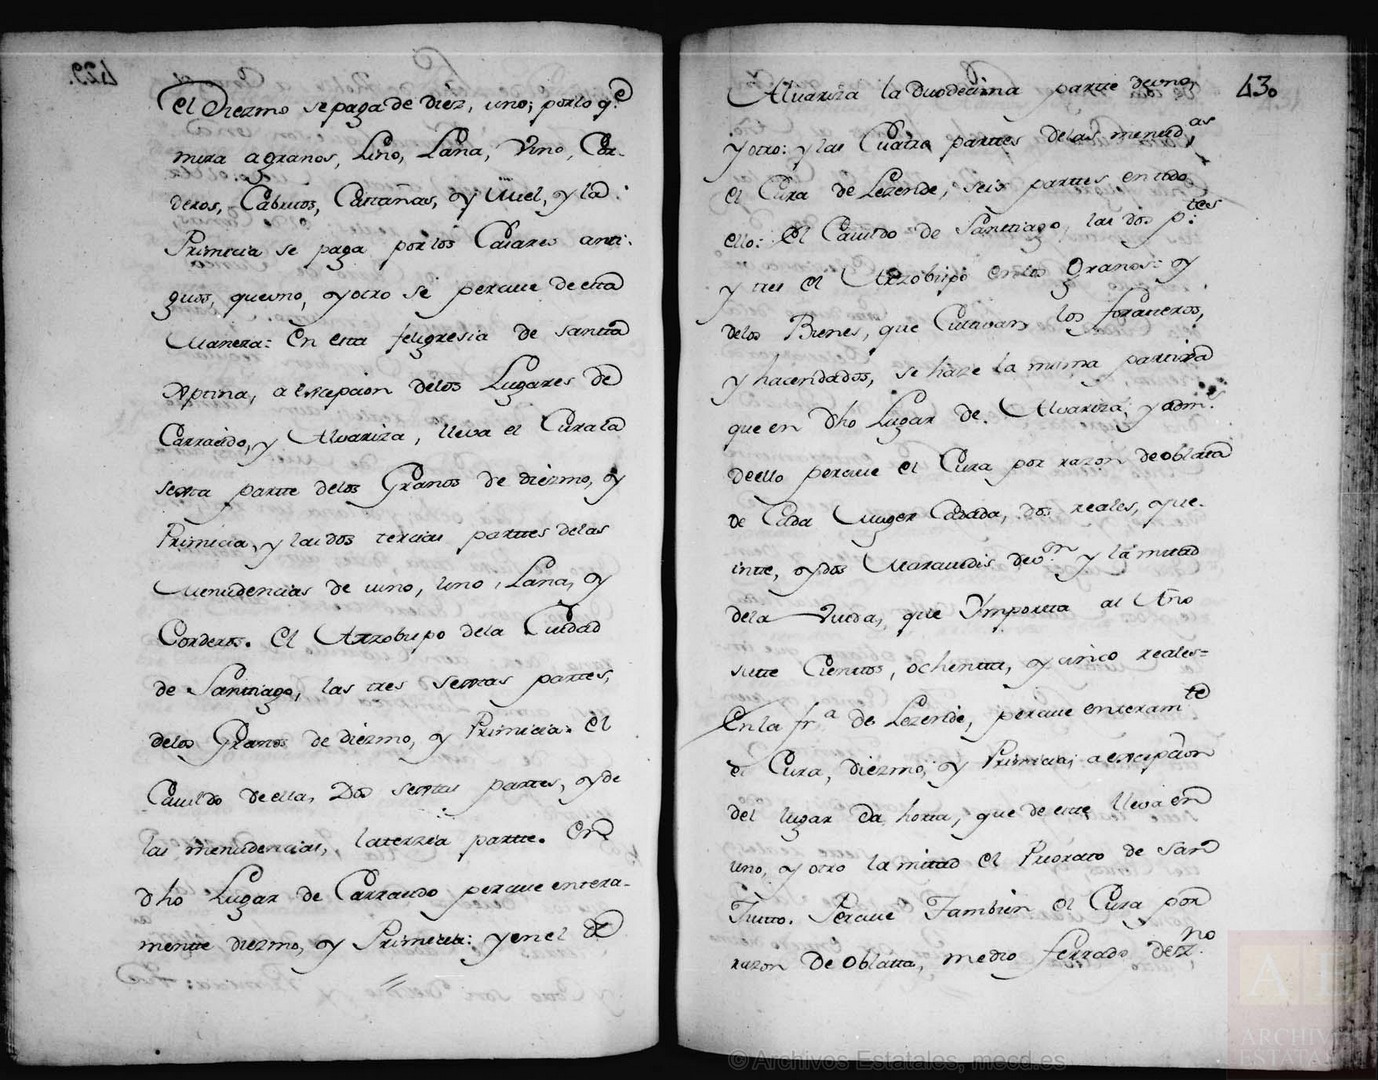 El Diezmo se paga de diez, uno; por lo q.e
mira a granos, Lino, Lana, Vino, Cor-
deros, Cabritos, Castañas, y Miel, y la
Primicia se paga por los Casares anti-
guos, que uno, y otro se percive de esta
Manera: En esta feligresia de Santta
a excepcion de los Lugares de
Carracedo, y Alvariza, lleva el Cura la
sexta partte delos Granos de diezmo, y
Primicia, y las dos tercias parttes delas
Menudencias de vino, lino, Lana, y
Corderos. El Arzobispo dela Ciudad
de Santtiago, las tres sextas parttes,
delos Granos de diezmo, y Primicia: el
Cavildo de ella, Dos sextas parttes, y de
las menudencias, la terzia partte. En
dho Lugar de percive entera-
mentte diezmo, y Primicia: y en el de
Alvariza la duodecima partte de uno,
y otro: y las Cuatro parttes delas menud.as
el Cura de Lezende, seis parttes en todo
ello: El Cavildo de Santtiago, las dos p.tes
y tres el Arzobispo en los Granos: y
delos Bienes, que Cultivan los foratteros,
y hacendados, se haze la misma partixa
que en dho Lugar de Alvariza; y adm.s
de ello percive el Cura por razon de oblata
de Cada Muger Casada, dos reales, que-
inze, y dos Maravedis de v.on y la mitad
dela Viuda, que Ymportta al Año
siette Cientos, ochentta, y cinco reales=
En la fr.a de Lezende, percive enteram.te
el Cura, diezmo, y Primicia; a excepcion
del lugar da horta, que de este lleva en
uno, y otro la mitad el Priorato de San
Justto. Percive Tambien el Cura por
razon de oblatta, medio ferrado de zt.no
430
429.
© Archivos Estatales, mecd.es
AE
ARCHIVOS
ESTATALES